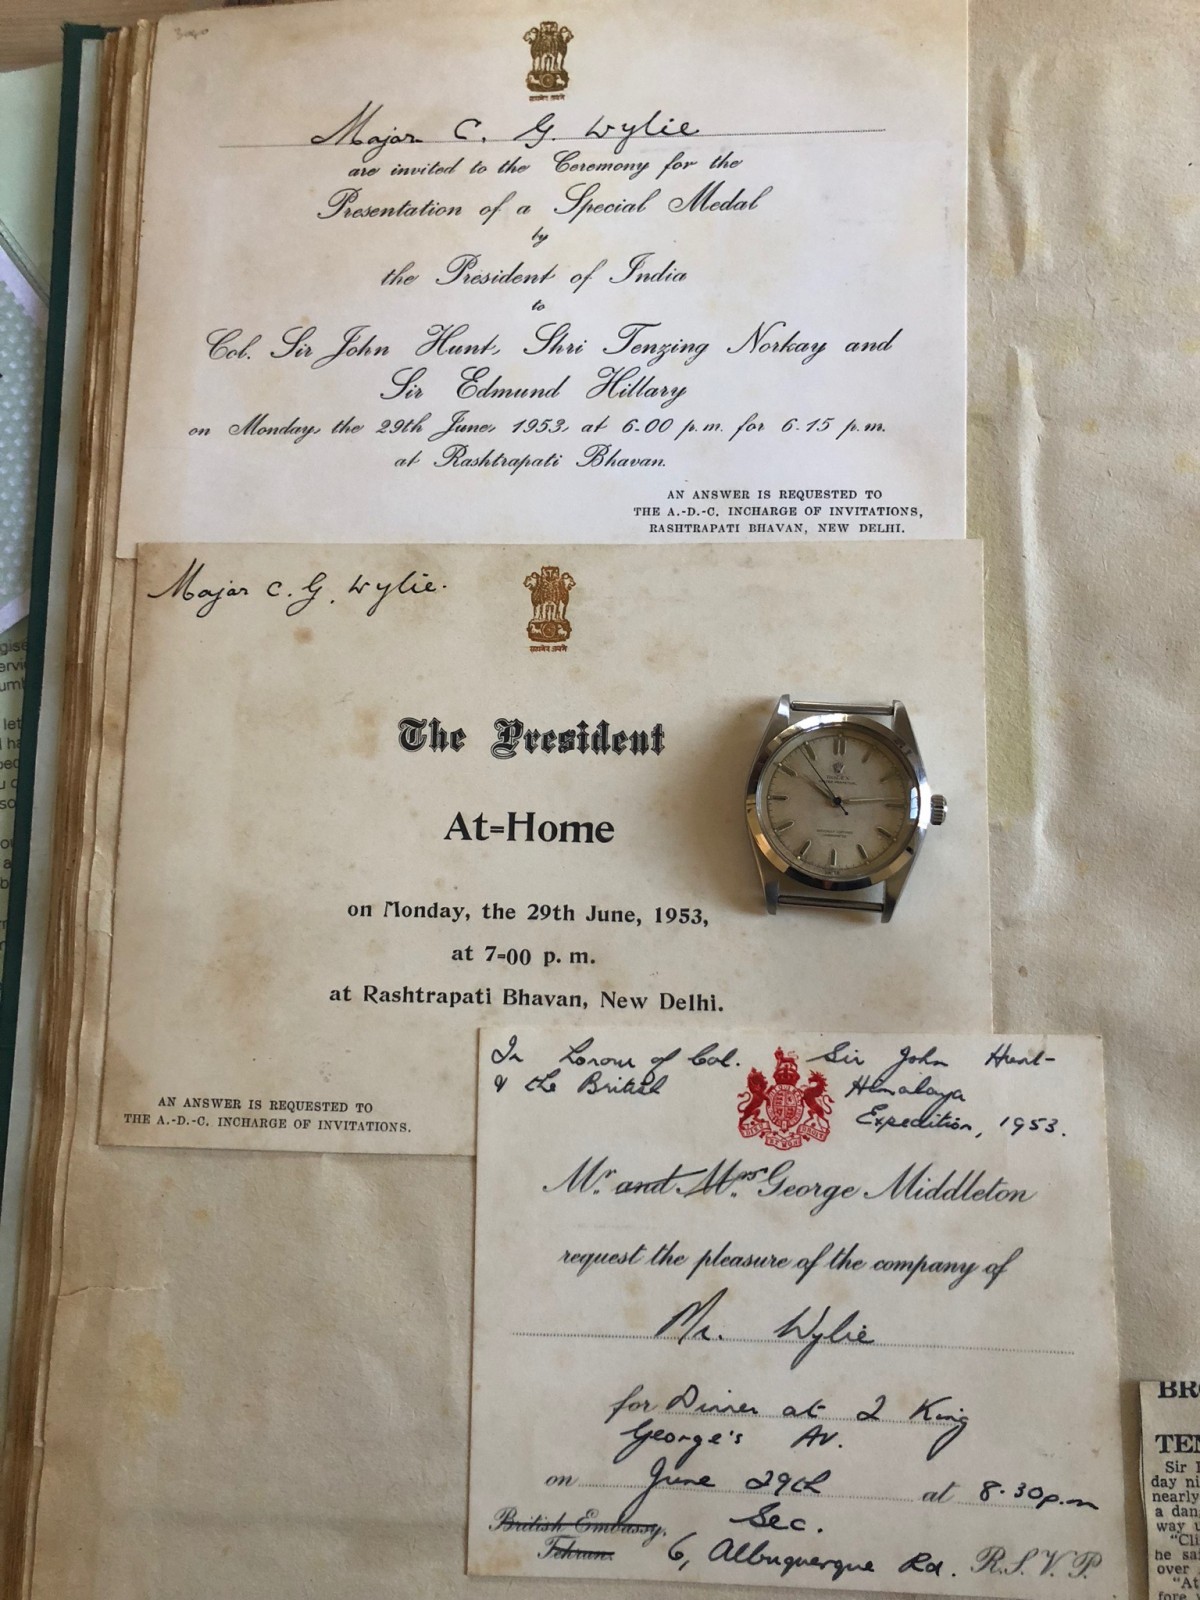 Major C. G. Wylie
are invited to the Ceremony for the
Presentation of a Special Medal
by
the President of India
to
Col. Sir John Hunt, Shri Tenzing Norkay and
Sir Edmund Hillary
on Monday, the 29th June, 1953, at 6.00 p.m. for 6.15 p.m.
at Rashtrapati Bhavan.
AN ANSWER IS REQUESTED TO
THE A.-D.-C. INCHARGE OF INVITATIONS,
RASHTRAPATI BHAVAN, NEW DELHI.
Major C. G. Wylie.
सत्यमेव जयते
The President
At-Home
on Monday, the 29th June, 1953,
at 7-00 p. m.
at Rashtrapati Bhavan, New Delhi.
AN ANSWER IS REQUESTED TO
THE A.-D.-C. INCHARGE OF INVITATIONS.
ROLEX
In honour of Col. Sir John Hunt-
& the British Himalaya
Expedition, 1953.
Mr. and Mrs. George Middleton
request the pleasure of the company of
Mr. Wylie
for Dinner at 2 King
George's Av.
on June 29th at 8.30p.m
British Embassy, Sec.
Tehran. 6, Albuquerque Rd. R.S.V.P.
BR
TE
Sir
day ni
nearly
a dan
way u
"Cli
he sa
over
"At
fore